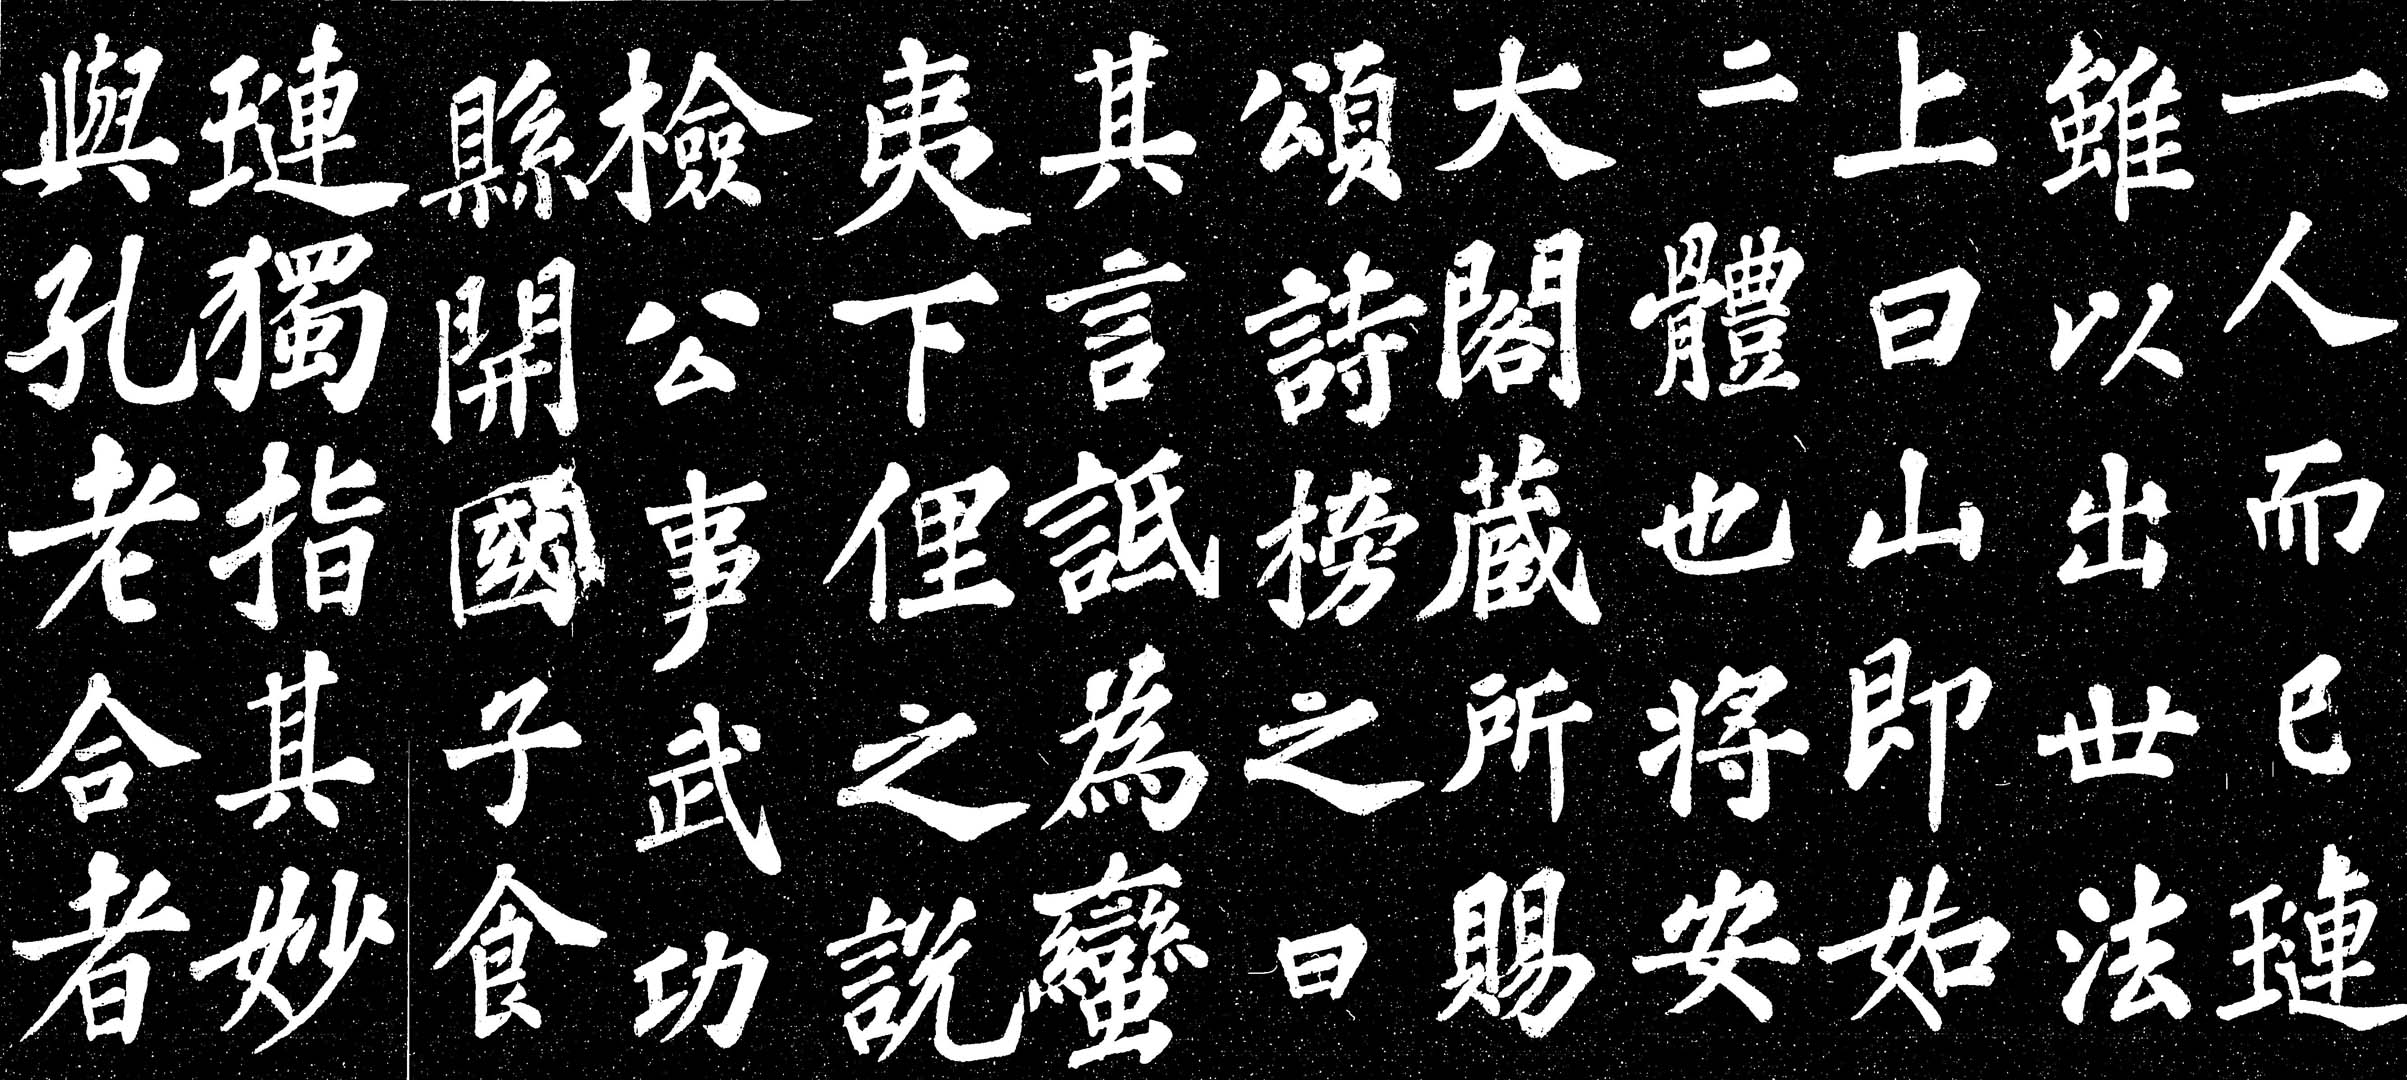 一人而已璉
雖以出世法
上曰山即如
二體也將安
大閣藏所賜
頌詩榜之曰
其言詆為蠻
夷下俚之說
檢公事武功
縣開國子食
璉獨指其妙
與孔老合者